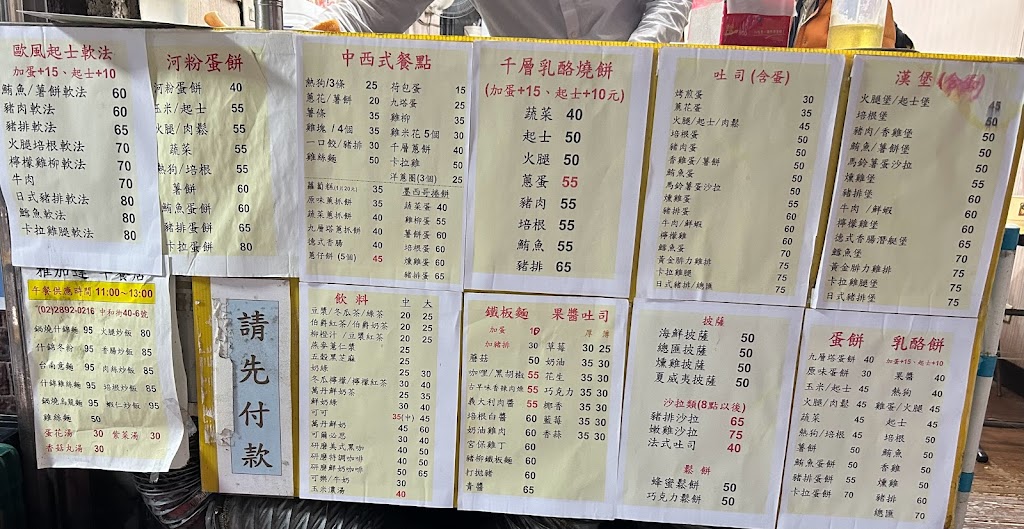 歐風起士軟法
加蛋+15、起士+10
鮪魚/薯餅軟法 60
豬肉軟法 60
豬排軟法 65
火腿培根軟法 70
檸檬雞柳軟法 70
牛肉 70
日式豬排軟法 80
鱈魚軟法 80
卡拉雞腿軟法 80
河粉蛋餅
河粉蛋餅 40
玉米/起士 55
火腿/肉鬆 55
蔬菜 55
熱狗/培根 55
薯餅 60
鮪魚蛋餅 60
豬排蛋餅 65
香雞蛋餅 60
中西式餐點
熱狗/3條 25
蔥花/薯餅 20
薯條 35
雞塊/4個 35
一口餃/豬排 30
雞絲麵 50
荷包蛋 15
九塔蛋 25
雞柳 35
雞米花5個 30
千層蔥餅 40
卡拉雞 50
洋蔥圈(3個) 25
蘿蔔糕 35
原味蔥抓餅 35
蔬菜蔥抓餅 40
九層塔蔥抓餅 40
德式香腸 40
蔥仔餅(5個) 45
墨西哥捲餅
蔬菜蛋 40
雞柳蛋 55
薯餅蛋 60
培根蛋 60
燻雞蛋 60
豬排蛋 65
千層乳酪燒餅
(加蛋+15、起士+10元)
蔬菜 40
起士 50
火腿 50
蔥蛋 55
豬肉 55
培根 55
鮪魚 55
豬排 65
吐司(含蛋)
烤煎蛋 30
蔥花蛋 35
火腿/起士/肉鬆 45
培根蛋 50
豬肉蛋 50
香雞蛋/薯餅 50
鮪魚蛋 50
馬鈴薯蛋沙拉 50
燻雞蛋 60
豬排蛋 60
牛肉/鮮蝦 60
檸檬雞 60
鱈魚蛋 70
黃金腓力雞排 75
卡拉雞腿 75
日式豬排/總匯 75
漢堡(含蛋)
火腿堡/起士堡 45
培根堡 50
豬肉/香雞堡 50
鮪魚/薯餅堡 50
馬鈴薯蛋沙拉 50
燻雞堡 60
豬排堡 60
牛肉/鮮蝦 60
檸檬雞堡 60
德式香腸潛艇堡 65
鱈魚堡 70
黃金腓力雞排 75
卡拉雞腿堡 75
日式豬排堡 75
午餐供應時間 11:00～13:00
(02)2892-0216 中和街40-6號
鍋燒什錦麵 95
什錦冬粉 95
台南意麵 95
什錦雞絲麵 95
鍋燒烏龍麵 95
雞絲麵 50
火腿炒飯 85
香腸炒飯 85
肉絲炒飯 85
培根炒飯 95
蝦仁炒飯 95
蛋花湯 30 紫菜湯 30
香菇丸湯 30
請先付款
飲料 中 大
豆漿/冬瓜茶/綠茶 20 25
伯爵紅茶/伯爵奶茶 20 25
柳橙汁/豆漿紅茶 20 25
燕麥薏仁漿
五穀黑芝麻
奶綠
冬瓜檸檬/檸檬紅茶
萬丹鮮奶茶
鮮奶綠
可可
萬丹鮮奶
可爾必思
研磨美式黑咖
研磨特調咖啡
研磨鮮奶咖啡
可樂/牛奶
玉米濃湯 40
鐵板麵
加蛋 10
加豬排 30
蘑菇 50
咖哩/黑胡椒 55
古早味香辣肉燥 55
義大利肉醬 55
培根白醬 60
奶油雞肉 60
宮保雞丁 60
豬柳鐵板麵 60
打拋豬 60
青醬 65
果醬吐司
厚 薄
草莓 30 25
奶油 35 30
花生 35 30
巧克力 35 30
椰香 35 30
藍莓 35 30
香蒜 35 30
披薩
海鮮披薩 50
總匯披薩 50
燻雞披薩 50
夏威夷披薩 50
沙拉類(8點以後)
豬排沙拉 65
嫩雞沙拉 75
法式吐司 40
鬆餅
蜂蜜鬆餅 50
巧克力鬆餅 50
蛋餅
九層塔蛋餅 40
原味蛋餅 30
玉米/起士 45
火腿/肉鬆 45
蔬菜 45
熱狗/培根 45
薯餅 50
鮪魚蛋餅 50
豬樂/蛋餅
卡拉蛋餅 70
乳酪餅
加蛋+15、起士+10
果醬 40
熱狗 40
雞蛋/火腿 45
起士 45
培根 50
鮪魚 50
香雞 50
燻雞 50
豬排 60
總匯 70